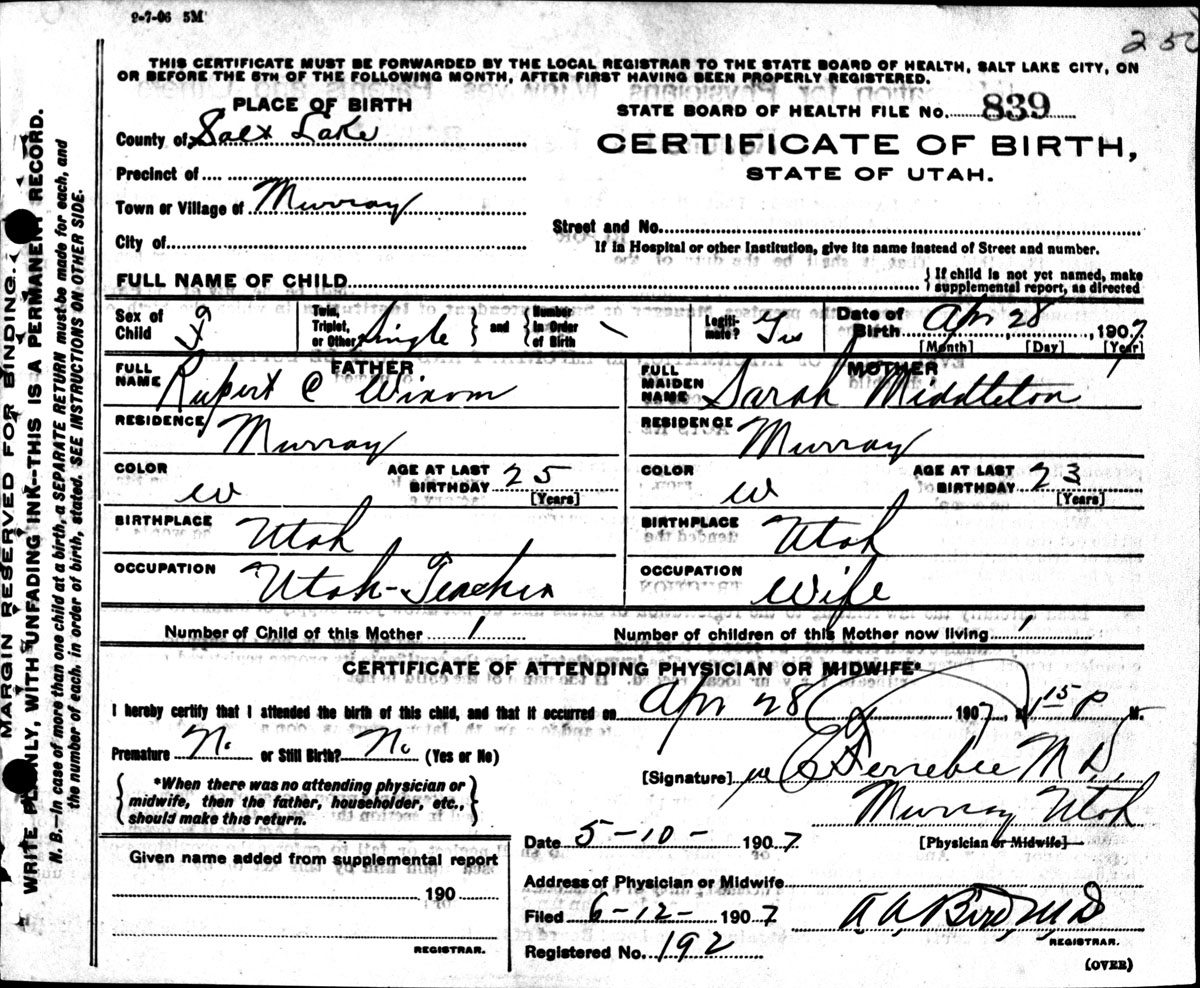 2-7-06 5M
250
THIS CERTIFICATE MUST BE FORWARDED BY THE LOCAL REGISTRAR TO THE STATE BOARD OF HEALTH, SALT LAKE CITY, ON
OR BEFORE THE 5TH OF THE FOLLOWING MONTH, AFTER FIRST HAVING BEEN PROPERLY REGISTERED.
PLACE OF BIRTH
County of Salt Lake
Precinct of
Town or Village of Murray
City of
STATE BOARD OF HEALTH FILE No. 839
CERTIFICATE OF BIRTH,
STATE OF UTAH.
Street and No.
If in Hospital or other Institution, give its name instead of Street and number.
FULL NAME OF CHILD
{If child is not yet named, make
supplemental report, as directed
Sex of Child
Twin, Triplet, or Other Single } and { Number in Order of Birth
Legitimate? Yes
Date of Birth Apr 28, 1907
[Month] [Day] [Year]
FATHER
FULL NAME Rupert C Winom
RESIDENCE Murray
COLOR W AGE AT LAST BIRTHDAY 25 [Years]
BIRTHPLACE Utah
OCCUPATION Utah-Teacher
MOTHER
FULL MAIDEN NAME Sarah Middleton
RESIDENCE Murray
COLOR W AGE AT LAST BIRTHDAY 23 [Years]
BIRTHPLACE Utah
OCCUPATION Wife
Number of Child of this Mother 1 Number of children of this Mother now living 1
CERTIFICATE OF ATTENDING PHYSICIAN OR MIDWIFE*
I hereby certify that I attended the birth of this child, and that it occurred on Apr 28 1907, 1 15 P M.
Premature No or Still Birth? No (Yes or No)
{*When there was no attending physician or
midwife, then the father, householder, etc.,
should make this return.}
[Signature] Ferrebee M D,
Murray Utah
[Physician or Midwife]
Date 5-10- 1907
Given name added from supplemental report
190
REGISTRAR.
Address of Physician or Midwife
Filed 6-12- 1907 A. A. Bird, M, D
REGISTRAR.
Registered No. 192
(OVER)
MARGIN RESERVED FOR BINDING.
WRITE PLAINLY, WITH UNFADING INK--THIS IS A PERMANENT RECORD.
N. B.—In case of more than one child at a birth, a SEPARATE RETURN must be made for each, and
the number of each, in order of birth, stated. SEE INSTRUCTIONS ON OTHER SIDE.